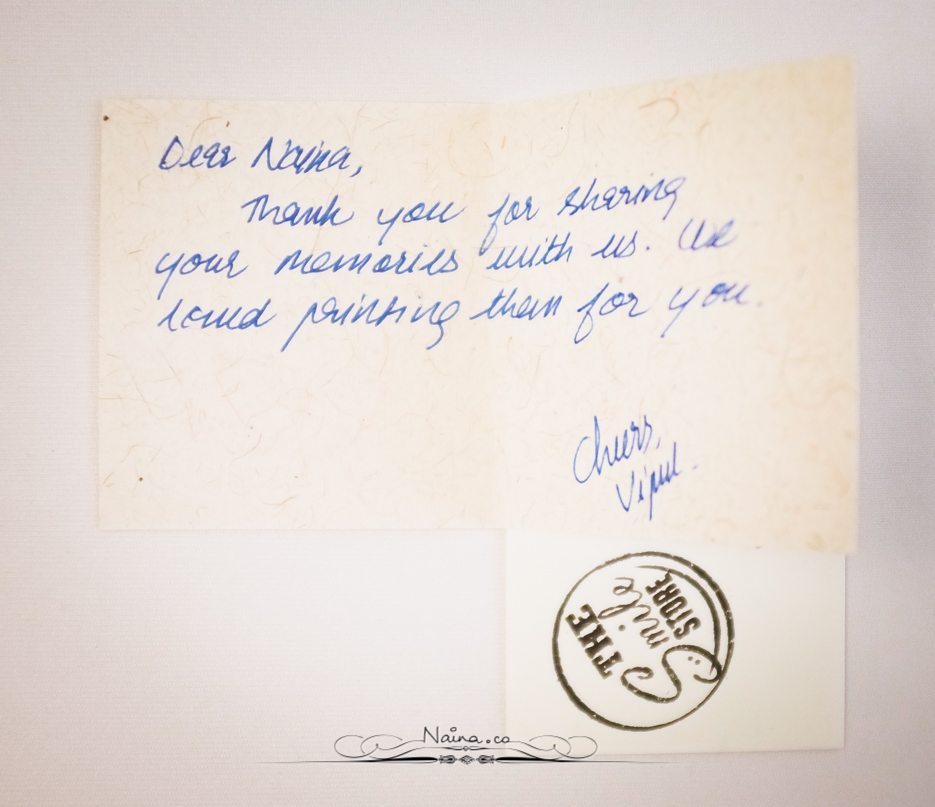 Dear Naina,
Thank you for sharing
your memories with us. We
loved printing them for you.
Cheers,
Vipul.
THE
Smile
STORE
Naina.co